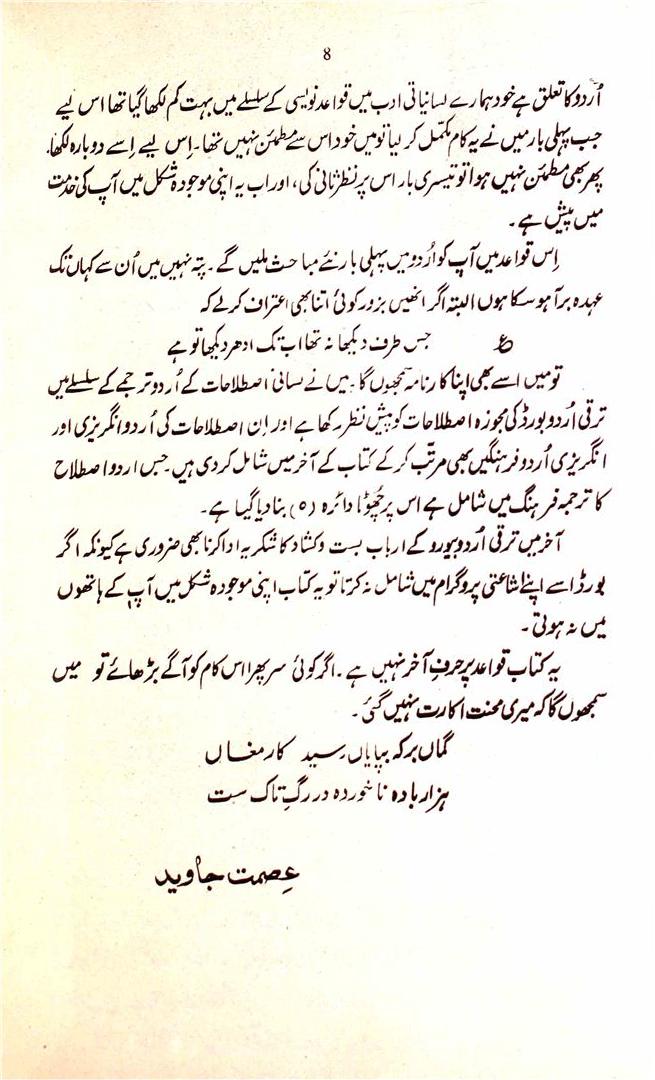 8
اُردو کا تعلق ہے خود ہمارے لسانیاتی ادب میں قواعد نویسی کے سلسلے میں بہت کم لکھا گیا تھا اس لیے
جب پہلی بار میں نے یہ کام مکمّل کر لیا تو میں خود اس سے مطمئن نہیں تھا۔ اِس لیے اِسے دوبارہ لکھا،
پھر بھی مطمئن نہیں ہوا تو تیسری بار اس پر نظر ثانی کی، اور اب یہ اپنی موجودہ شکل میں آپ کی خدمت
میں پیش ہے۔
اِس قواعد میں آپ کو اُردو میں پہلی بار نئے مباحث ملیں گے۔ پتہ نہیں میں اُن سے کہاں تک
عہدہ برآ ہو سکا ہوں البتہ اگر انھیں بزور کوئی اتنا بھی اعتراف کر لے کہ
ع جس طرف دیکھا نہ تھا اب تک ادھر دیکھا تو ہے
تو میں اسے بھی اپنا کارنامہ سمجھوں گا۔ میں نے لسانی اصطلاحات کے اُردو ترجمے کے سلسلے میں
ترقی اُردو بورڈ کی مجوزہ اصطلاحات کو پیش نظر رکھا ہے اور اِن اصطلاحات کی اُردو انگریزی اور
انگریزی اُردو فرہنگیں بھی مرتّب کر کے کتاب کے آخر میں شامل کر دی ہیں۔ جس اردو اصطلاح
کا ترجمہ فرہنگ میں شامل ہے اس پر چھوٹا دائرہ (٥) بنا دیا گیا ہے۔
آخر میں ترقی اُردو بیورو کے ارباب بست و کشاد کا شکریہ ادا کرنا بھی ضروری ہے کیونکہ اگر
بورڈ اسے اپنے اشاعتی پروگرام میں شامل نہ کرتا تو یہ کتاب اپنی موجودہ شکل میں آپ کے ہاتھوں
میں نہ ہوتی۔
یہ کتاب قواعد پر حرفِ آخر نہیں ہے۔ اگر کوئی سر پھرا اس کام کو آگے بڑھائے تو میں
سمجھوں گا کہ میری محنت اکارت نہیں گئی۔
گماں برکہ بپایاں رسید کار مغاں
ہزار بادہ ناخوردہ در رگِ تاک ست
عِصمت جاوید